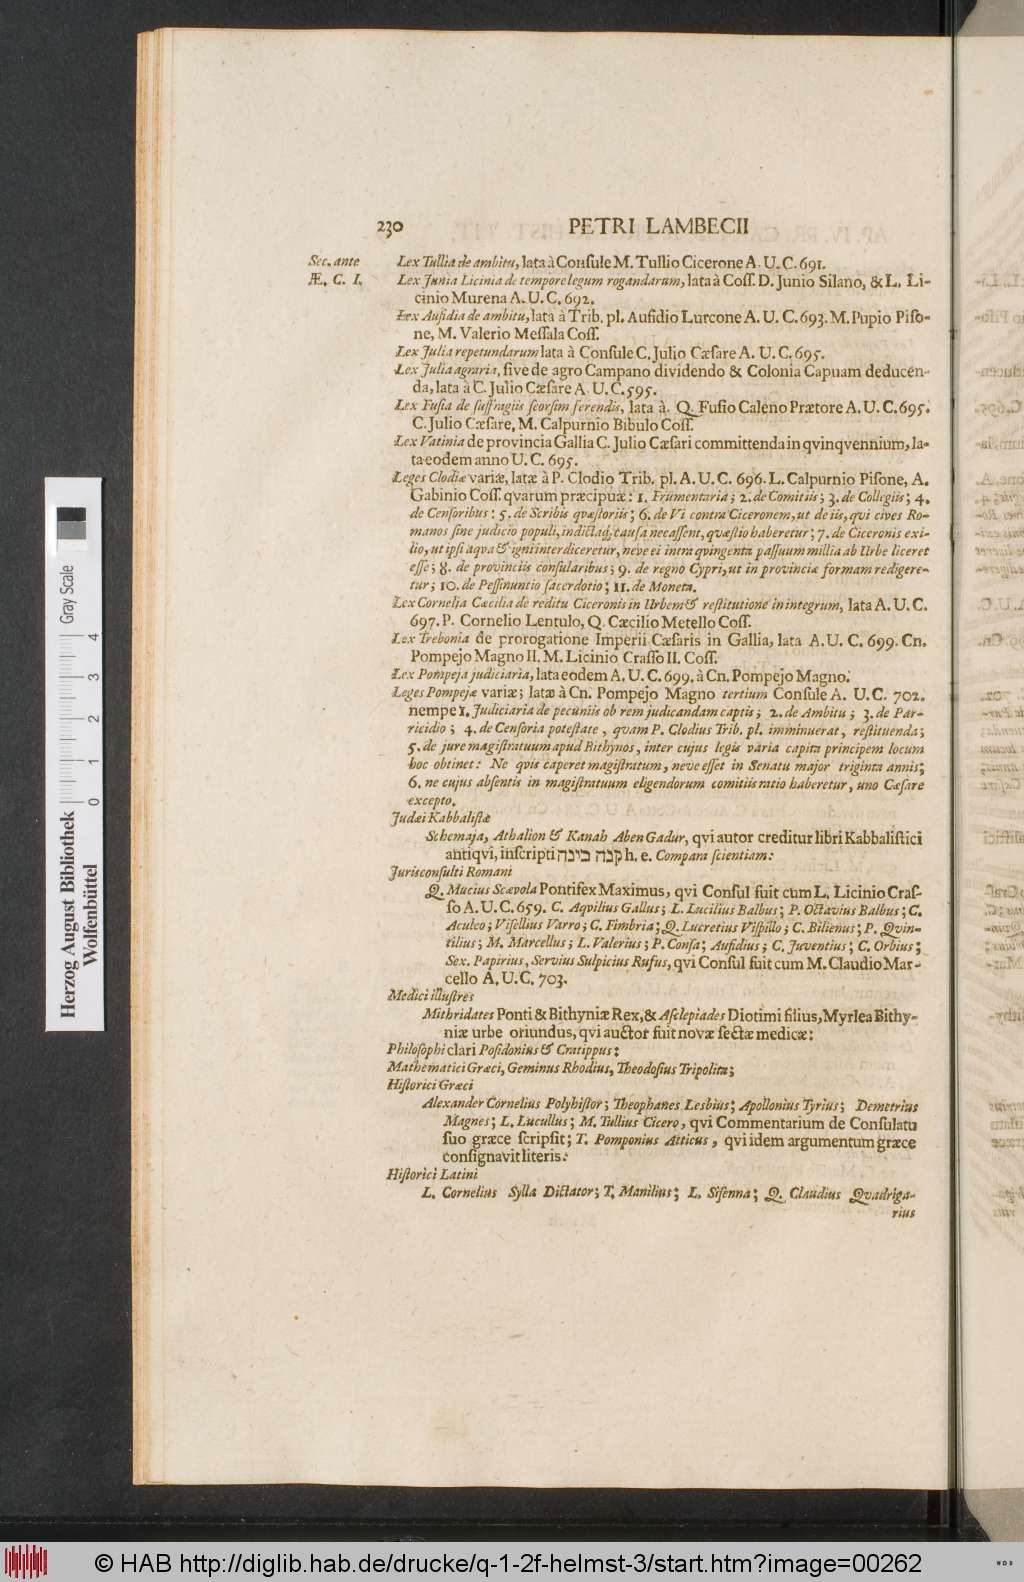 230 PETRI LAMBECII
Sec. ante
Æ. C. I.
Lex Tullia de ambitu, lata à Consule M. Tullio Cicerone A. U. C. 691.
Lex Junia Licinia de tempore legum rogandarum, lata à Coss. D. Junio Silano, & L. Li-
cinio Murena A. U. C. 692.
Lex Aufidia de ambitu, lata à Trib. pl. Aufidio Lurcone A. U. C. 693. M. Pupio Piso-
ne, M. Valerio Messala Coss.
Lex Julia repetundarum lata à Consule C. Julio Cæsare A. U. C. 695.
Lex Julia agraria, sive de agro Campano dividendo & Colonia Capuam deducen-
da, lata à C. Julio Cæsare A. U. C. 595.
Lex Fusia de suffragiis seorsim ferendis, lata à Q. Fusio Caleno Prætore A. U. C. 695.
C. Julio Cæsare, M. Calpurnio Bibulo Coss.
Lex Vatinia de provincia Gallia C. Julio Cæsari committenda in qvinqvennium, la-
ta eodem anno U. C. 695.
Leges Clodiæ variæ, latæ à P. Clodio Trib. pl. A. U. C. 696. L. Calpurnio Pisone, A.
Gabinio Coss. qvarum præcipuæ: 1. Frumentaria; 2. de Comitiis; 3. de Collegiis; 4.
de Censoribus: 5. de Scribis qvæstoriis; 6. de Vi contra Ciceronem, ut de iis, qvi cives Ro-
manos sine judicio populi, indictaq; causa necassent, qvæstio haberetur; 7. de Ciceronis exi-
lio, ut ipsi aqva & igni interdiceretur, neve ei intra qvingenta passuum millia ab Urbe liceret
esse; 8. de provinciis consularibus; 9. de regno Cypri, ut in provinciæ formam redigere-
tur; 10. de Pessinuntio sacerdotio; 11. de Moneta.
Lex Cornelia Cæcilia de reditu Ciceronis in Urbem & restitutione in integrum, lata A. U. C.
697. P. Cornelio Lentulo, Q. Cæcilio Metello Coss.
Lex Trebonia de prorogatione Imperii Cæsaris in Gallia, lata A. U. C. 699. Cn.
Pompejo Magno II. M. Licinio Crasso II. Coss.
Lex Pompeja judiciaria, lata eodem A. U. C. 699. à Cn. Pompejo Magno.
Leges Pompejæ variæ; latæ à Cn. Pompejo Magno tertium Consule A. U. C. 702.
nempe 1. Judiciaria de pecuniis ob rem judicandam captis; 2. de Ambitu; 3. de Par-
ricidio; 4. de Censoria potestate, qvam P. Clodius Trib. pl. imminuerat, restituenda;
5. de jure magistratuum apud Bithynos, inter cujus legis varia capita principem locum
hoc obtinet: Ne qvis caperet magistratum, neve esset in Senatu major triginta annis;
6. ne cujus absentis in magistratuum eligendorum comitiis ratio haberetur, uno Cæsare
excepto.
Judæi Kabbalistæ
Schemaja, Athalion & Kanah Aben Gadur, qvi autor creditur libri Kabbalistici
antiqvi, inscripti קנה בינה h. e. Compara scientiam:
Jurisconsulti Romani
Q. Mucius Scævola Pontifex Maximus, qvi Consul fuit cum L. Licinio Cras-
so A. U. C. 659. C. Aqvilius Gallus; L. Lucilius Balbus; P. Octavius Balbus; C.
Aculeo; Visellius Varro; C. Fimbria; Q. Lucretius Vispillo; C. Bilienus; P. Qvin-
tilius; M. Marcellus; L. Valerius; P. Consa; Aufidius; C. Juventius; C. Orbius;
Sex. Papirius, Servius Sulpicius Rufus, qvi Consul fuit cum M. Claudio Mar-
cello A. U. C. 703.
Medici illustres
Mithridates Ponti & Bithyniæ Rex, & Asclepiades Diotimi filius, Myrlea Bithy-
niæ urbe oriundus, qvi auctor fuit novæ sectæ medicæ:
Philosophi clari Posidonius & Cratippus:
Mathematici Græci, Geminus Rhodius, Theodosius Tripolita;
Historici Græci
Alexander Cornelius Polyhistor; Theophanes Lesbius; Apollonius Tyrius; Demetrius
Magnes; L. Lucullus; M. Tullius Cicero, qvi Commentarium de Consulatu
suo græce scripsit; T. Pomponius Atticus, qvi idem argumentum græce
consignavit literis:
Historici Latini
L. Cornelius Sylla Dictator; T. Manilius; L. Sisenna; Q. Claudius Qvadriga-
rius
Herzog August Bibliothek
Wolfenbüttel
Gray Scale
0 1 2 3 4
© HAB http://diglib.hab.de/drucke/q-1-2f-helmst-3/start.htm?image=00262